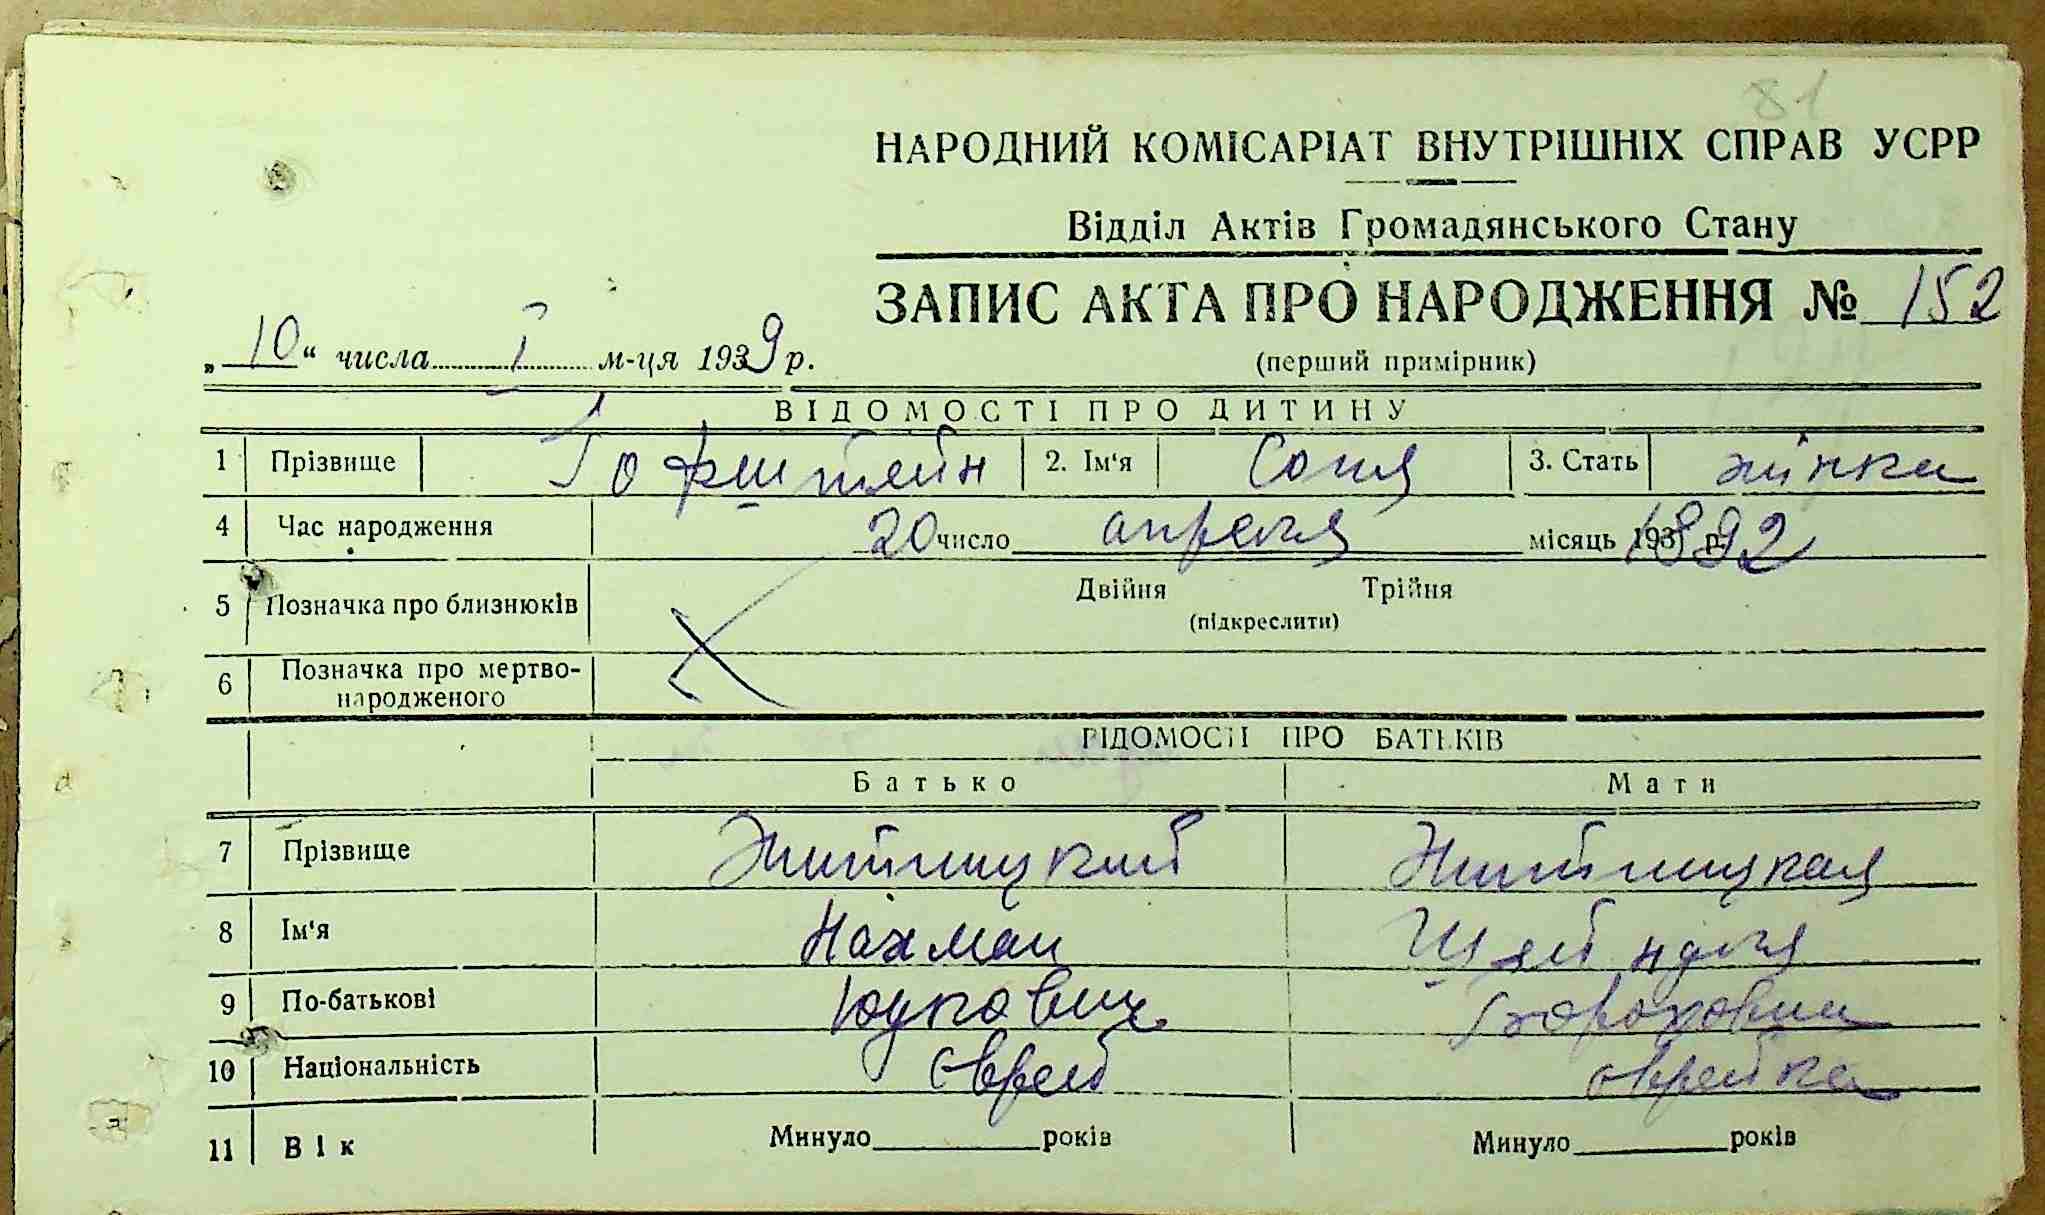 81
НАРОДНИЙ КОМІСАРІАТ ВНУТРІШНІХ СПРАВ УСРР
Відділ Актів Громадянського Стану
ЗАПИС АКТА ПРО НАРОДЖЕННЯ № 152
„10“ числа I м-ця 1939 р.
(перший примірник)
ВІДОМОСТІ ПРО ДИТИНУ
1 Прізвище Гофштейн 2. Ім‘я Соня 3. Стать жінка
4 Час народження 20 число апреля місяць 1892
5 Позначка про близнюків Двійня Трійня
(підкреслити)
6 Позначка про мертво-
народженого
ВІДОМОСТІ ПРО БАТЬКІВ
Батько Мати
7 Прізвище Житницкий Житницкая
8 Ім‘я Нахман
9 По-батькові
10 Національність еврей еврейка
11 Вік Минуло років Минуло років